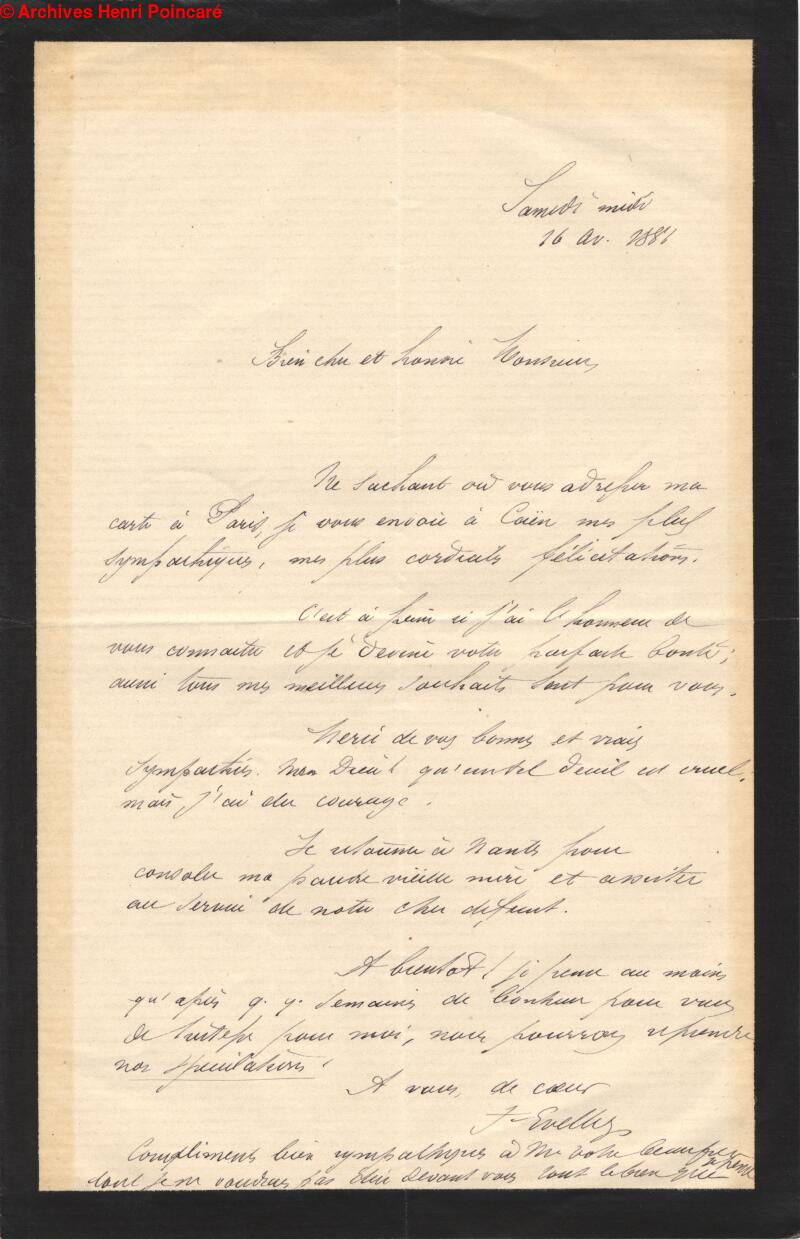 © Archives Henri Poincaré
Samedi midi
16 av. 1881
Bien cher et honoré Monsieur
Ne sachant où vous adresser ma
carte à Paris, je vous envoie à Caën mes plus
sympathiques, mes plus cordiales félicitations.
C'est à peine si j'ai l'honneur de
vous connaitre et je devine votre parfaite bonté ;
aussi tous mes meilleurs souhaits sont pour vous.
Merci de vos bonnes et vraies
sympathies. Mon Dieu ! qu'un tel deuil est cruel,
mais, j'ai du courage.
Je retourne à Nantes pour
consoler ma pauvre vieille mère et assister
au service de notre cher défunt.
A bientôt ! je pense au moins
qu'après q.q. semaines de bonheur pour vous
de tristesse pour moi, nous pourrons reprendre
nos spéculations !
A vous, de cœur
F. Evellin
Compliments bien sympathiques à Mr votre beau père
dont je ne voudrais pas dire devant vous tout le bien que je pense